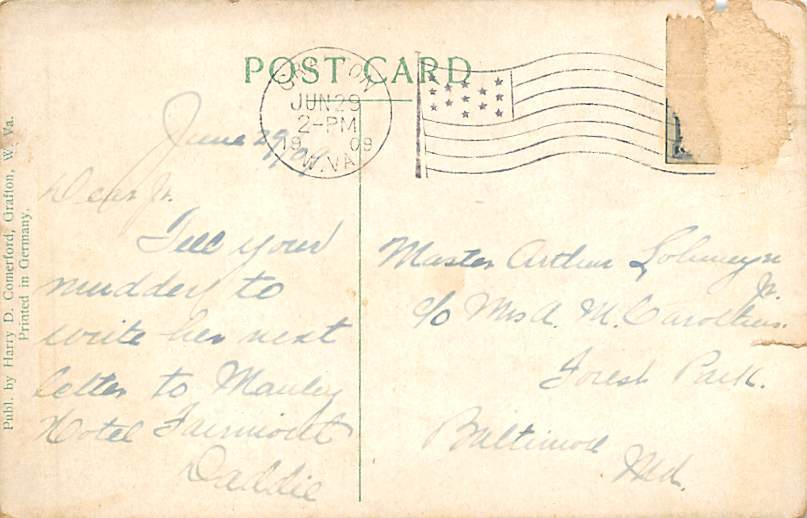 POST CARD
GRAFTON
JUN 29
2-PM
1909
W. VA.
June 29/09
Dear Jr.
Tell your
mudder to
write her next
letter to Manley
Hotel Fairmont
Daddie
Master Arthur Lohmeyer
Jr.
c/o Mrs A. M. Carothers.
Forest Park.
Baltimore
Md.
Publ. by Harry D. Comerford, Grafton, W. Va.
Printed in Germany.